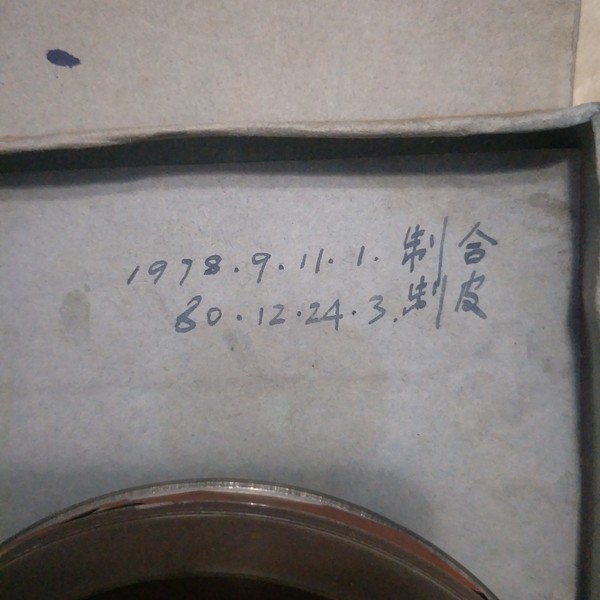 1978.9.11.1.制合
80.12.24.3.制皮